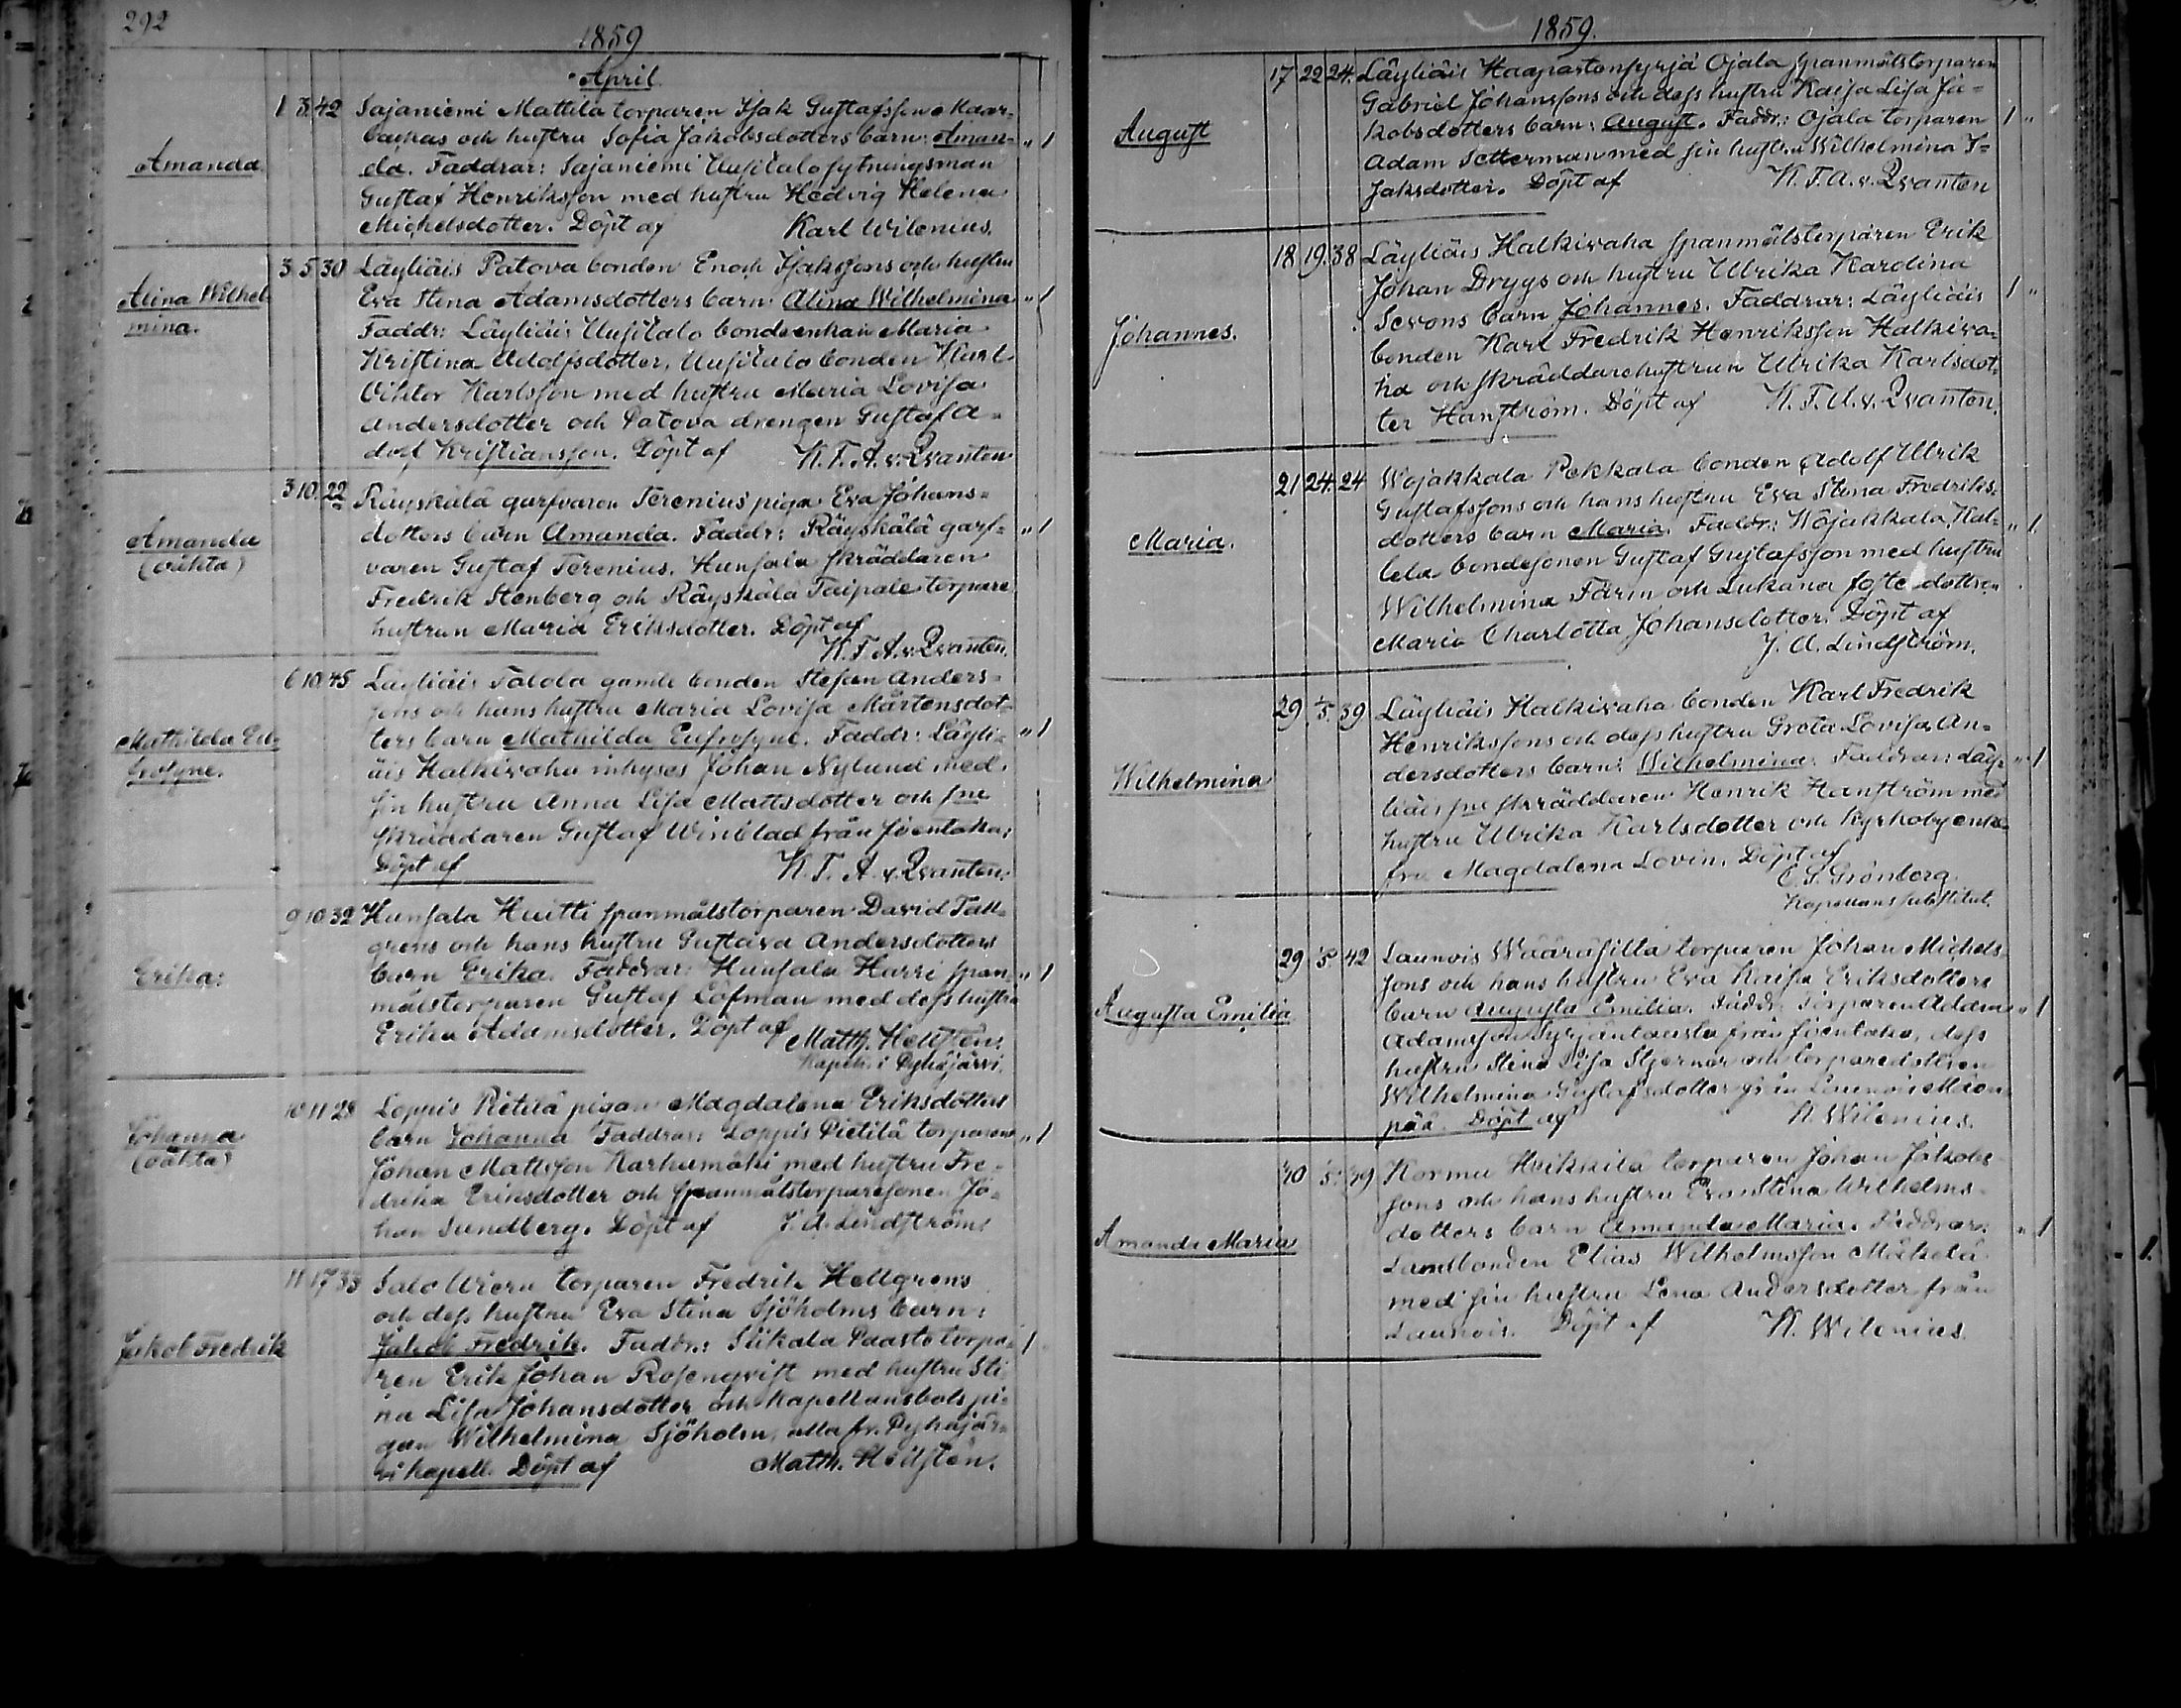 292
1859
April
Amanda
1 3 42 Sajaniemi Mattila torparen Isak Gustafsson
backas och hustru Sofia Jakobsdotters barn: Aman- „ 1
da. Faddrar: Sajaniemi Uusitalo sytningsman
Gustaf Henriksson med hustru Hedvig Helena
Michelsdotter. Döpt af Karl Wilenius.
Alina Wilhel-
mina.
3 5 30 Läyliäis Patova bonden Enoch Isakssons och hustru
Eva Stina Adamsdotters barn: Alina Wilhelmina „ 1
Faddr: Läyliäis Uusitalo bondeenkan Maria
Kristina Adolfsdotter, Uusitalo bonden Karl
Viktor Karlsson med hustru Maria Lovisa
Andersdotter och Patova drengen Gustaf A-
dolf Kristiansson. Döpt af K. F. A. v. Qvanten
Amanda
(oäkta)
3 10 22 Räyskälä garfvaren Terenius piga Eva Johans-
dotters barn Amanda. Faddr: Räyskälä garf- „ 1
varen Gustaf Terenius. Hunsala skräddaren
Fredrik Stenberg och Räyskälä Taipale torpare
hustrun Maria Eriksdotter. Döpt af
K. F. A. v. Qvanten.
Mathilda Eu-
frosyne.
6 10 45 Läyliäis Talola gamle bonden Stefan Anders-
sons och hans hustru Maria Lovisa Mårtensdot-
ters barn Mathilda Eufrosyne. Faddr: Läyli- „ 1
äis Halkivaha inhyses Johan Nylund med
sin hustru Anna Lisa Mattsdotter och
skräddaren Gustaf Winblad från Joentaka:
Döpt af K. F. A. v. Qvanten.
Erika:
9 10 32 Hunsala Huitti spanmålstorparen David Tall-
grens och hans hustru Gustava Andersdotters
barn Erika. Faddrar: Hunsala Harri span- „ 1
målstorparen Gustaf Löfman med dess hustru
Erika Adamsdotter. Döpt af Matth. Hellstén.
Kapell. i Pyhäjärvi.
Johanna
(oäkta)
10 11 28 Loppis Pietilä pigan Magdalena Eriksdotters
barn Johanna Faddrar: Loppis Pietilä torparen „ 1
Johan Mattsson Karhumäki med hustru Fre-
drika Eriksdotter och spanmålstorparesonen Jo-
han Sundberg. Döpt af J. A. Lindström.
Jakob Fredrik
11 17 33 Salo torparen Fredrik Hellgrens
och dess hustru Eva Stina Sjöholms barn:
Jakob Fredrik. Faddr.: Siikala Paasto torpa- 1
ren Erik Johan Rosenqvist med hustru Sti-
na Lisa Johansdotter och kapellansbols pi-
gan Wilhelmina Sjöholm, alla fr. Pyhäjär-
vi kapell. Döpt af Matth. Hellstén.
1859.
August
17 22 24. Läyliäis Haapastonsyrjä Ojala spanmålstorparen
Gabriel Johanssons och dess hustru Kaisa Lisa Ja-
kobsdotters barn: August. Faddr.: Ojala torparen 1 „
Adam Setterman med sin hustru Wilhelmina I-
saksdotter. Döpt af K. F. A. v. Qvanten
Johannes.
18 19 38 Läyliäis Halkivaha spanmålstorparen Erik
Johan Drygs och hustru Ulrika Karolina
Sevons barn Johannes. Faddrar: Läyliäis 1 „
bonden Karl Fredrik Henriksson Halkiva-
ha och skräddarehustrun Ulrika Karlsdot-
ter Hanström. Döpt af K. F. A. v. Qvanten.
Maria.
21 24 24 Wojakkala Pekkala bonden Adolf Ulrik
Gustafssons och hans hustru Eva Stina Fredriks-
dotters barn Maria. Faddr.: Wojakkala „ 1
bondesonen Gustaf Gustafsson med hustru
Wilhelmina Färm och Lukana
Maria Charlotta Johansdotter. Döpt af
J. A. Lindström.
Wilhelmina
29 1/5 39 Läyliäis Halkivaha bonden Karl Fredrik
Henrikssons och dess hustru Greta Lovisa An-
dersdotters barn: Wilhelmina: Faddrar: Läy- „ 1
liäis skräddaren Henrik Hanström med
hustru Ulrika Karlsdotter och Kyrkoby enke-
fru Magdalena Lovin. Döpt af
C. S. Grönberg
Kapellans substitut.
Augusta Emilia
29 5 42 Launois Wääräsilta torparen Johan Michels-
sons och hans hustru Eva Kaisa Eriksdotters
barn Augusta Emilia. Faddr: torparen Adam „ 1
Adamsson Syrjäntausta från Joentaka, dess
hustru Stina Lisa Stjernor och torparedottren
Wilhelmina Gustafsdotter från Launois
pää. Döpt af K. Wilenius.
Amanda Maria
30 5 39 Kormu Heikkilä torparen Johan Jakobs-
sons och hans hustru Eva Stina Wilhelms-
dotters barn Amanda Maria. Faddrar: „ 1
Landbonden Elias Wilhelmsson Mäkelä
med sin hustru Lena Andersdotter från
Launois. Döpt af K. Wilenius.